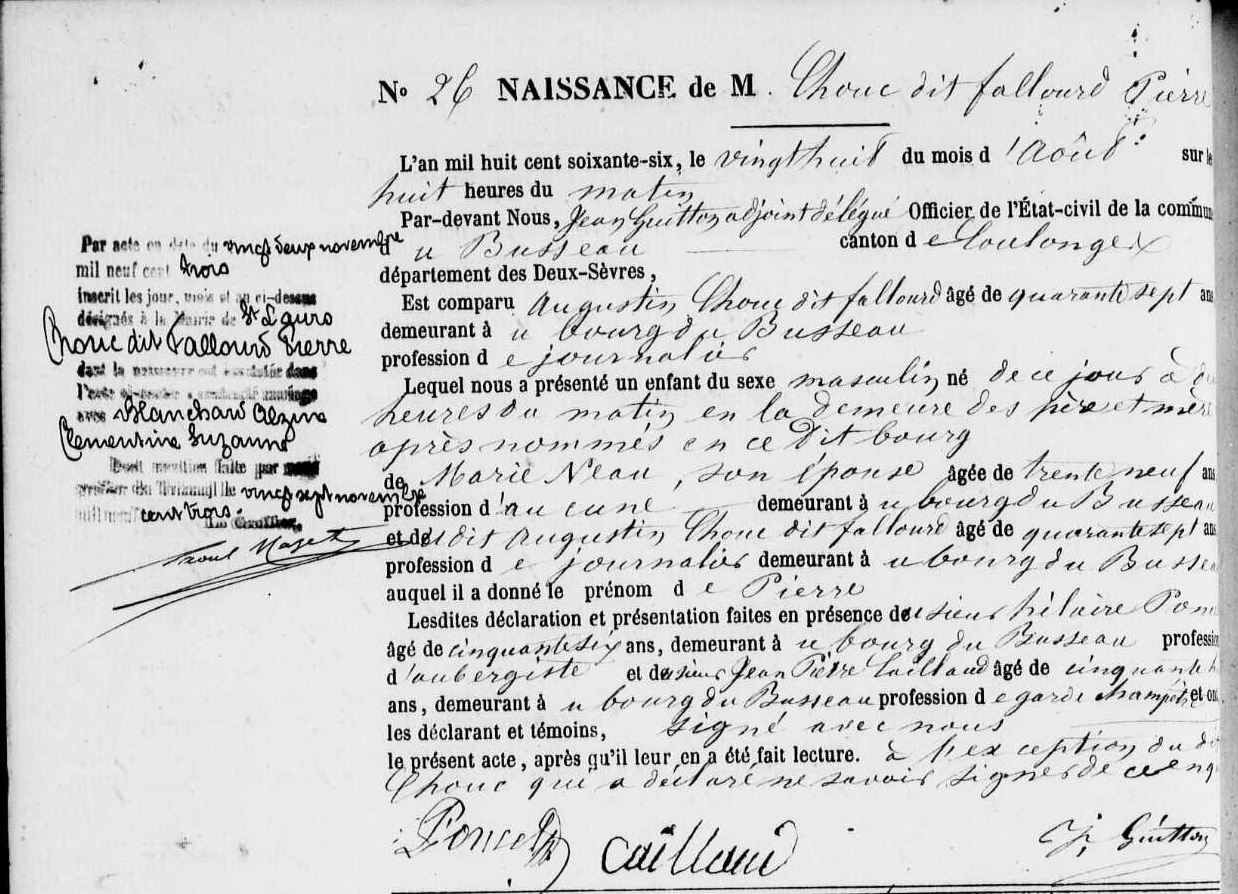 No 26 NAISSANCE de M. Chouc dit fallourd Pierre
L'an mil huit cent soixante-six, le vingt huit du mois d'Août sur le
huit heures du matin
Par-devant Nous, Jean Guitton adjoint délégué Officier de l'État-civil de la commun
d u Busseau canton d e Coulonges
département des Deux-Sèvres,
Est comparu Augustin Chouc dit fallourd âgé de quarante sept ans
demeurant à u bourg du Busseau
profession d e journalier
Lequel nous a présenté un enfant du sexe masculin né de ce jour à
heures du matin en la demeure des père et mère
après nommés en ce dit bourg
de Marie Neau, son épouse âgée de trente neuf ans
profession d'aucune demeurant à u bourg du Busseau
et de dit Augustin Chouc dit fallourd âgé de quarante sept ans
profession d e journalier demeurant à u bourg du Bussea
auquel il a donné le prénom d e Pierre
Lesdites déclaration et présentation faites en présence de sieur hilaire
âgé de cinquante six ans, demeurant à u bourg du Busseau profession
d'aubergiste et de sieur Jean Pierre Caillaud âgé de cinquante
ans, demeurant à u bourg du Busseau profession d e garde champêtre et ont
les déclarant et témoins, signé avec nous
le présent acte, après qu'il leur en a été fait lecture. à l'exception du dit
Chouc qui a déclaré ne savoir signer de ce enq
Caillaud J. Guitton
Par acte en date du vingt deux novembre
mil neuf cent trois
inscrit les jour, mois et an ci-dessus
désignés à la Mairie de St Laurs
Chouc dit Fallourd Pierre
dont la naissance est constatée dans
l'acte ci-contre a contracté mariage
avec Blanchard Alzire
Clementine Suzanne
Dont mention faite par
greffier du Tribunal le vingt sept novembre
mil neuf cent trois.
Le Greffier,
Raoul